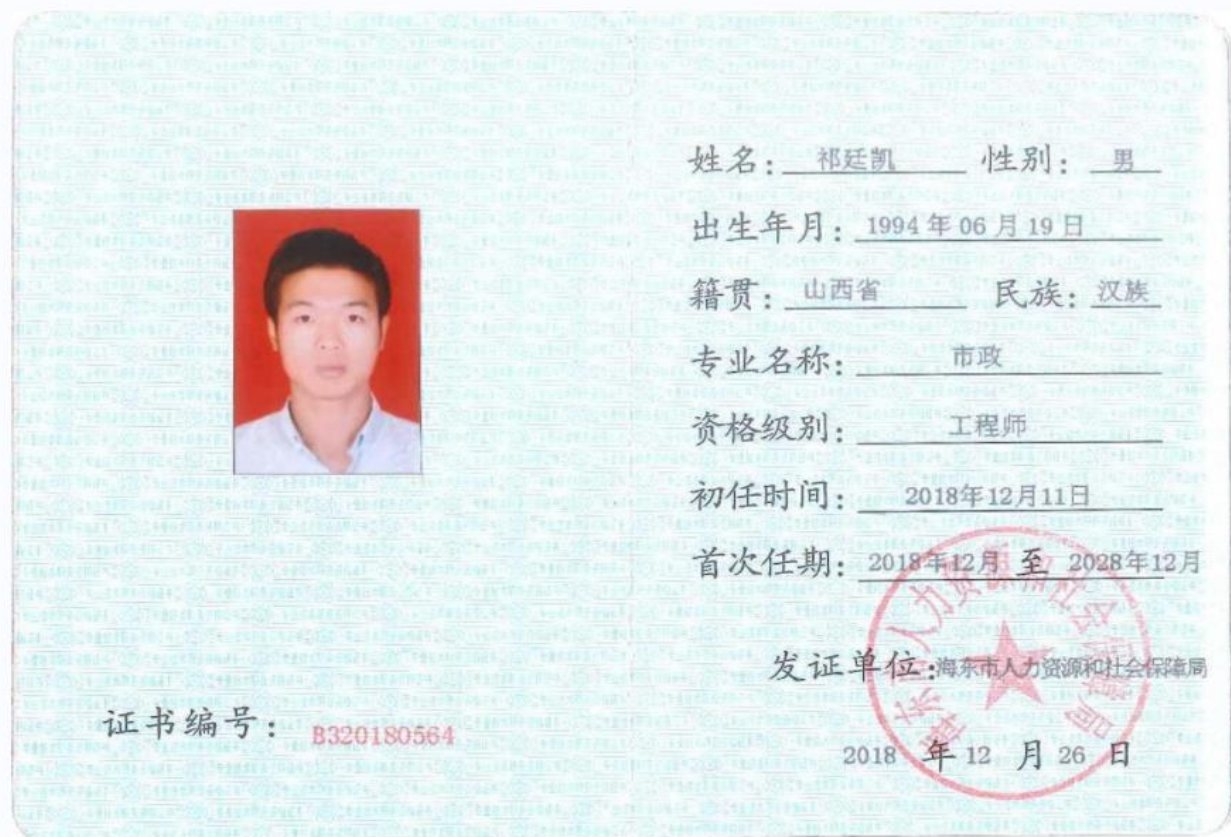 姓名： 祁廷凯 性别： 男
出生年月： 1994 年 06 月 19 日
籍贯： 山西省 民族： 汉族
专业名称： 市政
资格级别： 工程师
初任时间： 2018年12月11日
首次任期： 2018年12月 至 2028年12月
发证单位：海东市人力资源和社会保障局
2018 年 12 月 26 日
证书编号： B320180564